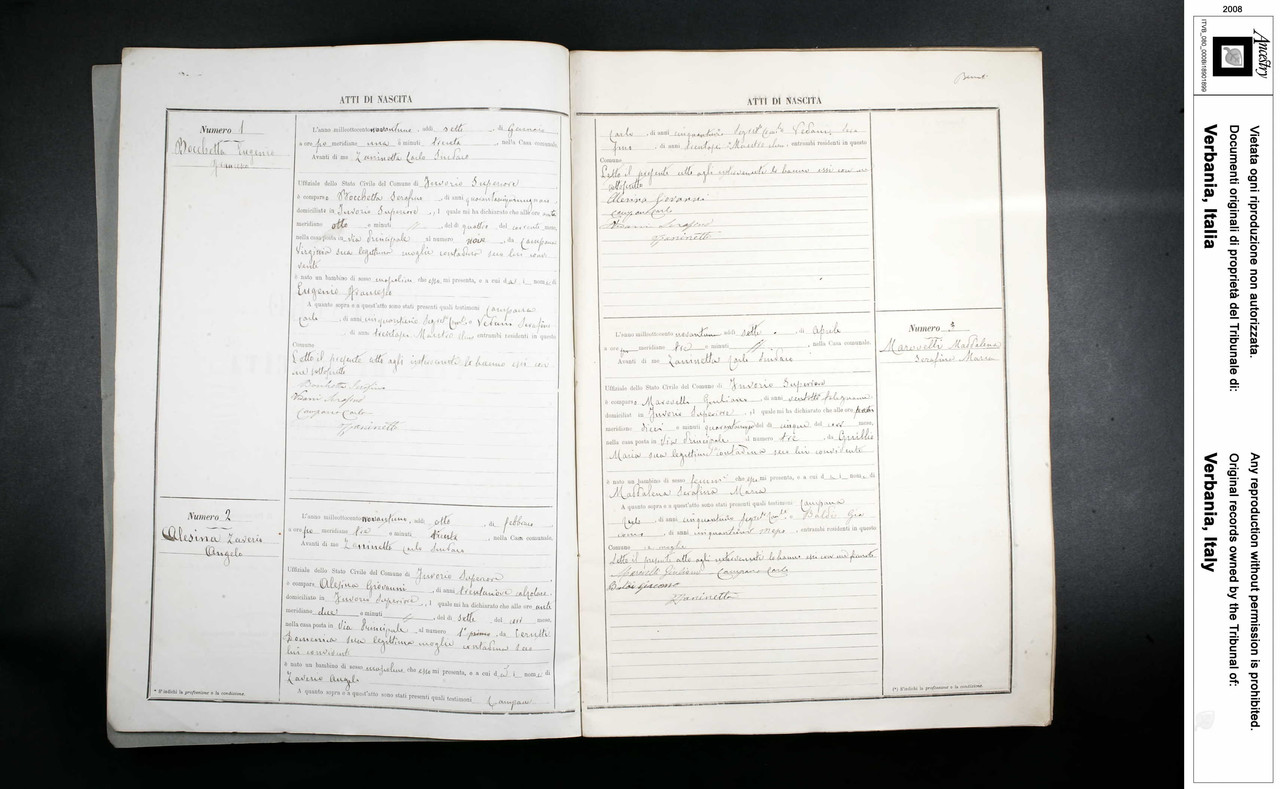 ATTI DI NASCITA
Numero 1
Bocchetta Eugenio
Francesco
L'anno milleottocentonovantuno, addì sette di Gennaio
a ore pom meridiane una e minuti trenta, nella Casa comunale.
Avanti di me Zaninetta Carlo Sindaco
Uffiziale dello Stato Civile del Comune di Invorio Superiore
è comparso Bocchetta Serafino, di anni quarantacinque
domiciliato in Invorio Superiore, il quale mi ha dichiarato che alle ore anti
meridiane otto e minuti del dì quattro del corrente mese,
nella casa posta in via Principale al numero nove, da Campana
Virginia sua legittima moglie contadina seco lui convivente
è nato un bambino di sesso mascolino che esso mi presenta, e a cui dà i nomi di
Eugenio Francesco
A quanto sopra e a quest'atto sono stati presenti quali testimoni Campana
Carlo, di anni cinquantasei Segret° Com.le e Vedani Serafino
di anni trentasei Maestro, entrambi residenti in questo
Comune
Letto il presente atto agli intervenuti lo hanno essi con
me sottoscritto
Bocchetta Serafino
Vedani Serafino
Campana Carlo
Zaninetti
Numero 2
Alesina Zaverio
Angelo
L'anno milleottocentonovantuno, addì otto di Febbraio
a ore po meridiane tre e minuti trenta, nella Casa comunale.
Avanti di me Zaninetta Carlo Sindaco
Uffiziale dello Stato Civile del Comune di Invorio Superiore
è comparso Alesina Giovanni, di anni trentanove
domiciliato in Invorio Superiore, il quale mi ha dichiarato che alle ore anti
meridiane due e minuti, del dì sette del mese,
nella casa posta in Via Principale al numero 1° primo, da
Domenica sua legittima moglie contadina seco
lui convivente
è nato un bambino di sesso mascolino che esso mi presenta, e a cui dà i nomi di
Zaverio Angelo
A quanto sopra e a quest'atto sono stati presenti quali testimoni Campana
* S'indichi la professione o la condizione.
ATTI DI NASCITA
Carlo, di anni cinquantasei Segret° Com.le Vedani Sera
fino, di anni trentasei Maestro, entrambi residenti in questo
Comune
Letto il presente atto agli intervenuti lo hanno essi con me
sottoscritto
Alesina Giovanni
Campana Carlo
Vedani Serafino
Zaninetti
Numero 3
Marovetti Maddalena
Serafina Maria
L'anno milleottocentonovantuno addì sette di Aprile
a ore meridiane tre e minuti, nella Casa comunale.
Avanti di me Zaninetta Carlo Sindaco
Uffiziale dello Stato Civile del Comune di Invorio Superiore
è comparso Marovetti Giuliano, di anni ventotto falegname
domiciliato in Invorio Superiore, il quale mi ha dichiarato che alle ore
meridiane dieci e minuti del dì cinque del mese,
nella casa posta in Via Principale al numero tre, da
Maria sua legittima contadina seco lui convivente
è nato un bambino di sesso che mi presenta, e a cui dà i nomi di
Maddalena Serafina Maria
A quanto sopra e a quest'atto sono stati presenti quali testimoni Campana
Carlo, di anni cinquantasei Segret° Com.le e Baldi Gia
como, di anni, entrambi residenti in questo
Comune
Letto il presente atto agli intervenuti lo hanno essi con me firmato.
Marovetti Giuliano Campana Carlo
Baldi Giacomo
Zaninetta
(*) S'indichi la professione o la condizione.
2008
Ancestry
ITVB_080_0008\1891\899
Vietata ogni riproduzione non autorizzata.
Documenti originali di proprietà del Tribunale di:
Verbania, Italia
Any reproduction without permission is prohibited.
Original records owned by the Tribunal of:
Verbania, Italy